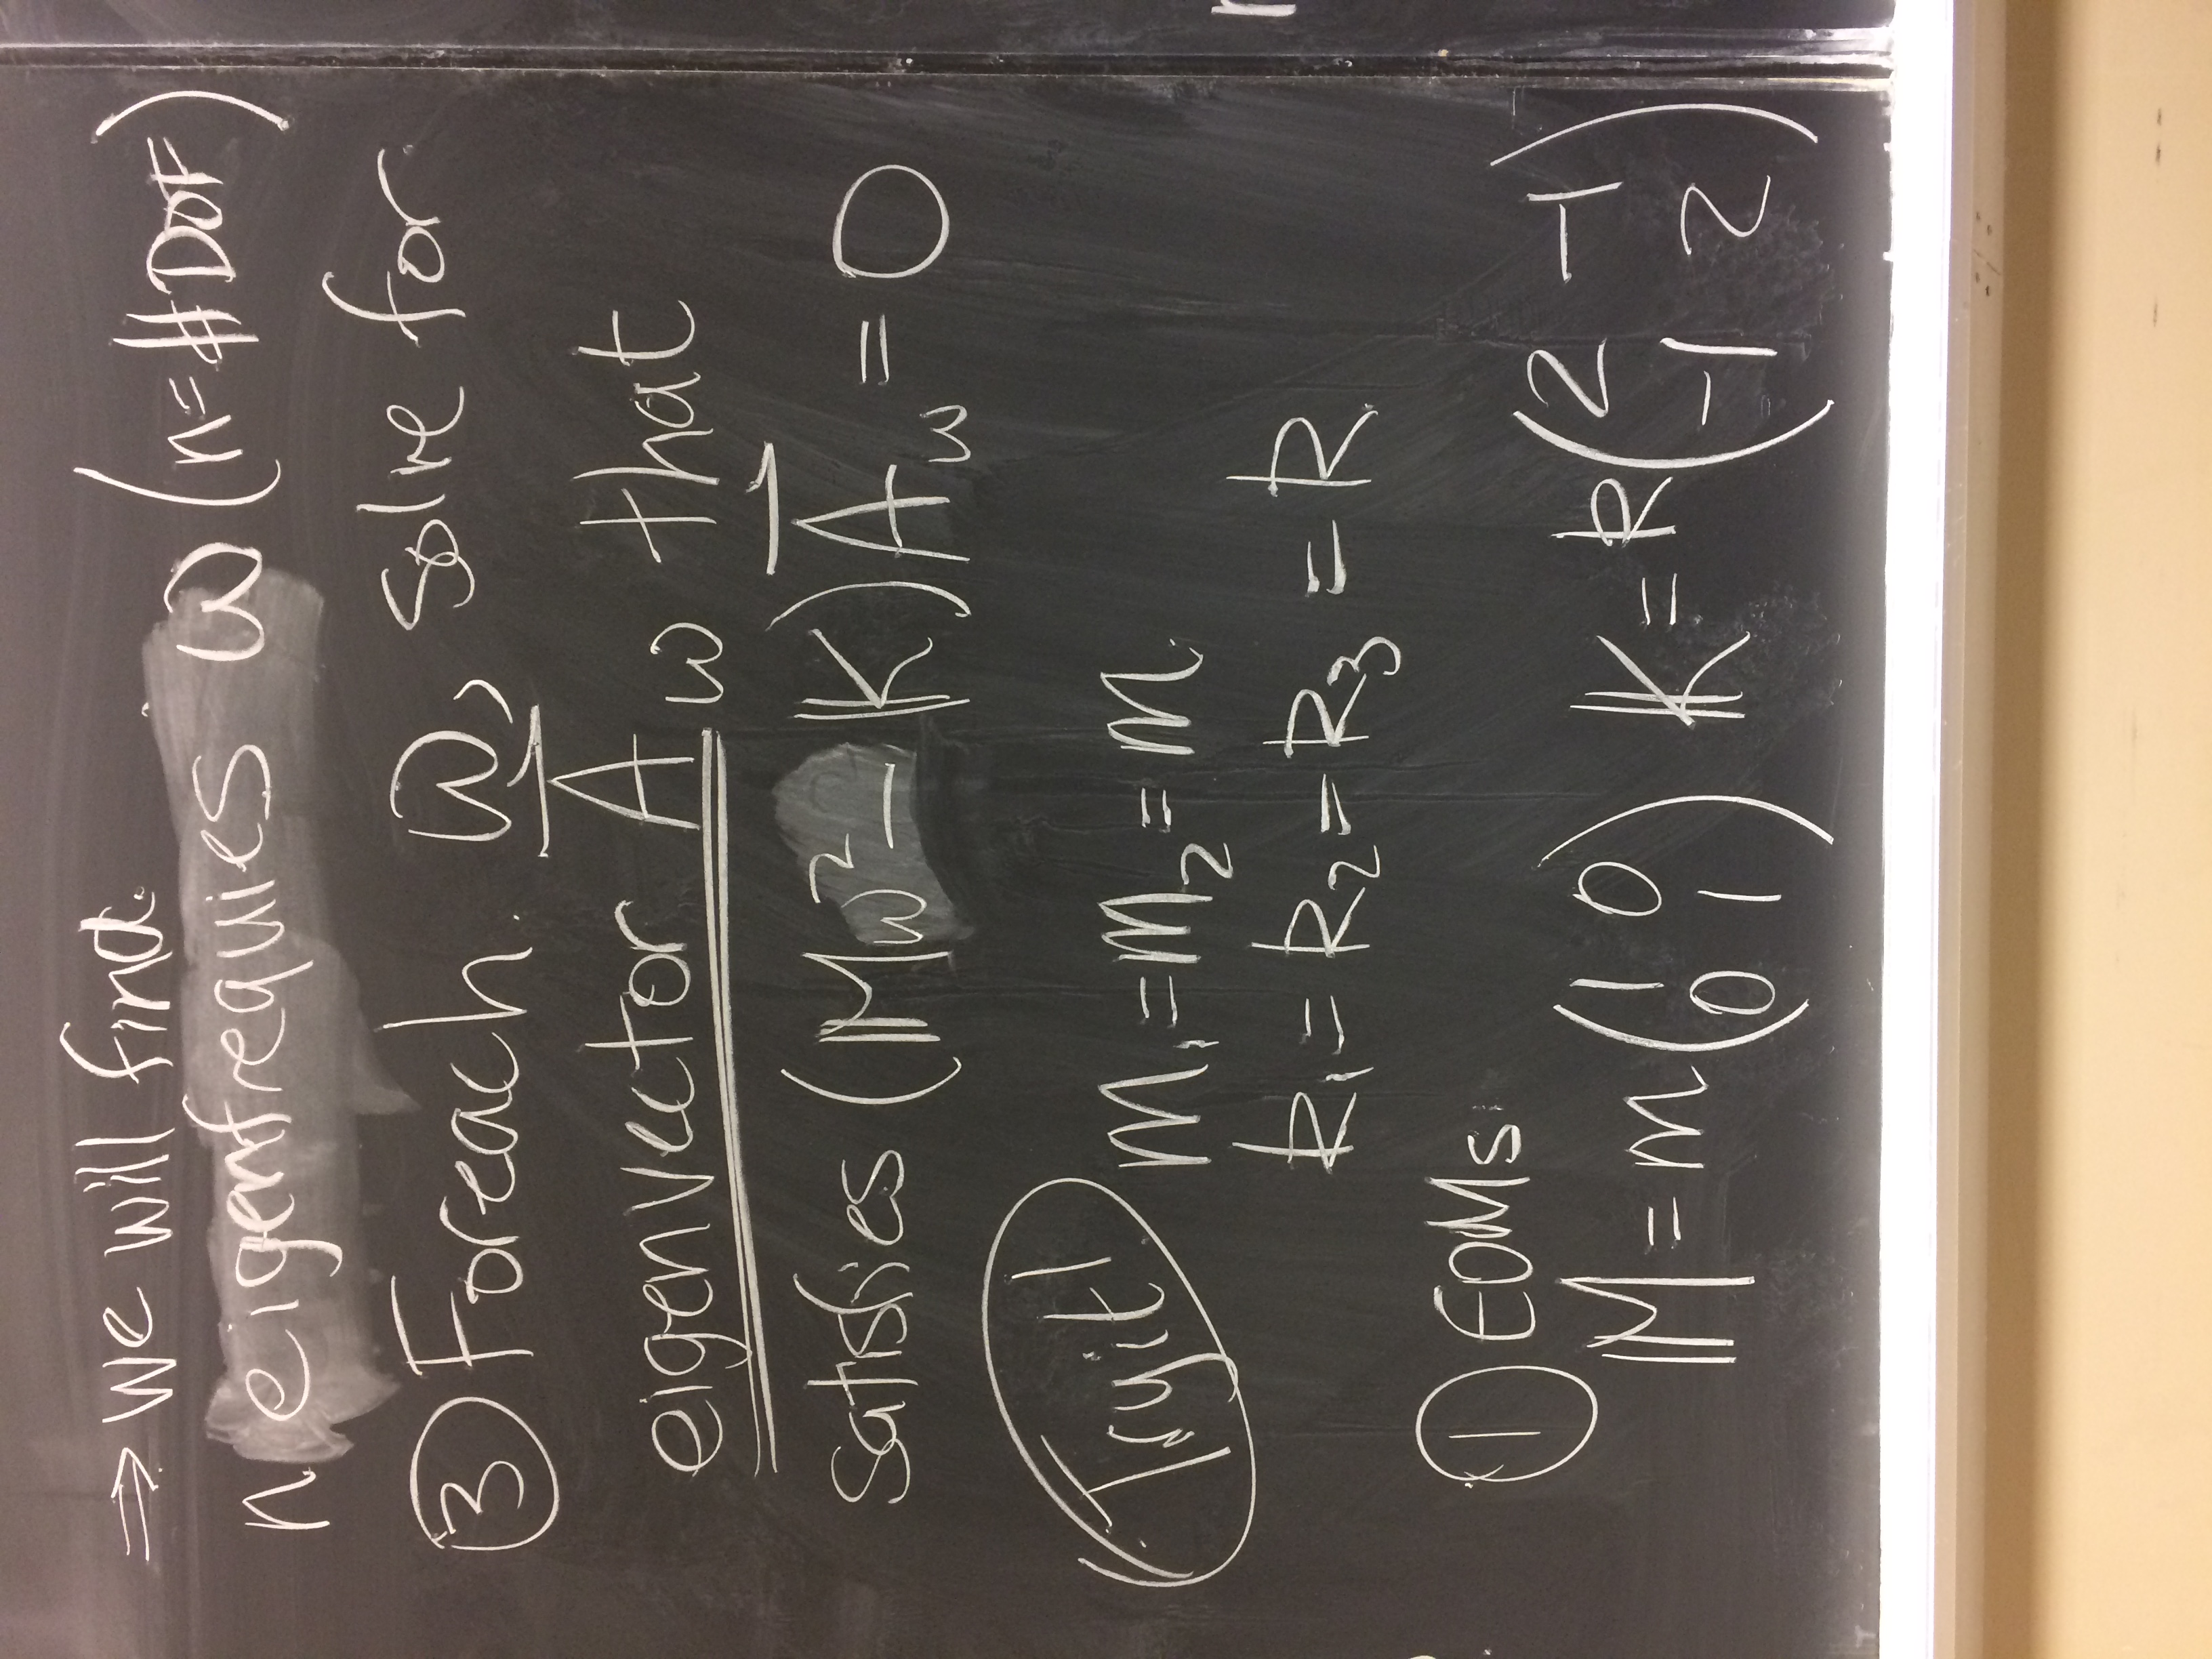 → we will find
n eigenfrequies ω (n=#DOF)
③ For each ω, solve for
eigenvector A⃗ω that
satisfies (Mω² - K) A⃗ω = 0
Try it! m₁ = m₂ = m
k₁ = k₂ = k₃ = k
① EOMs
M = m(1 0 K = k(2 -1
0 1) -1 2)